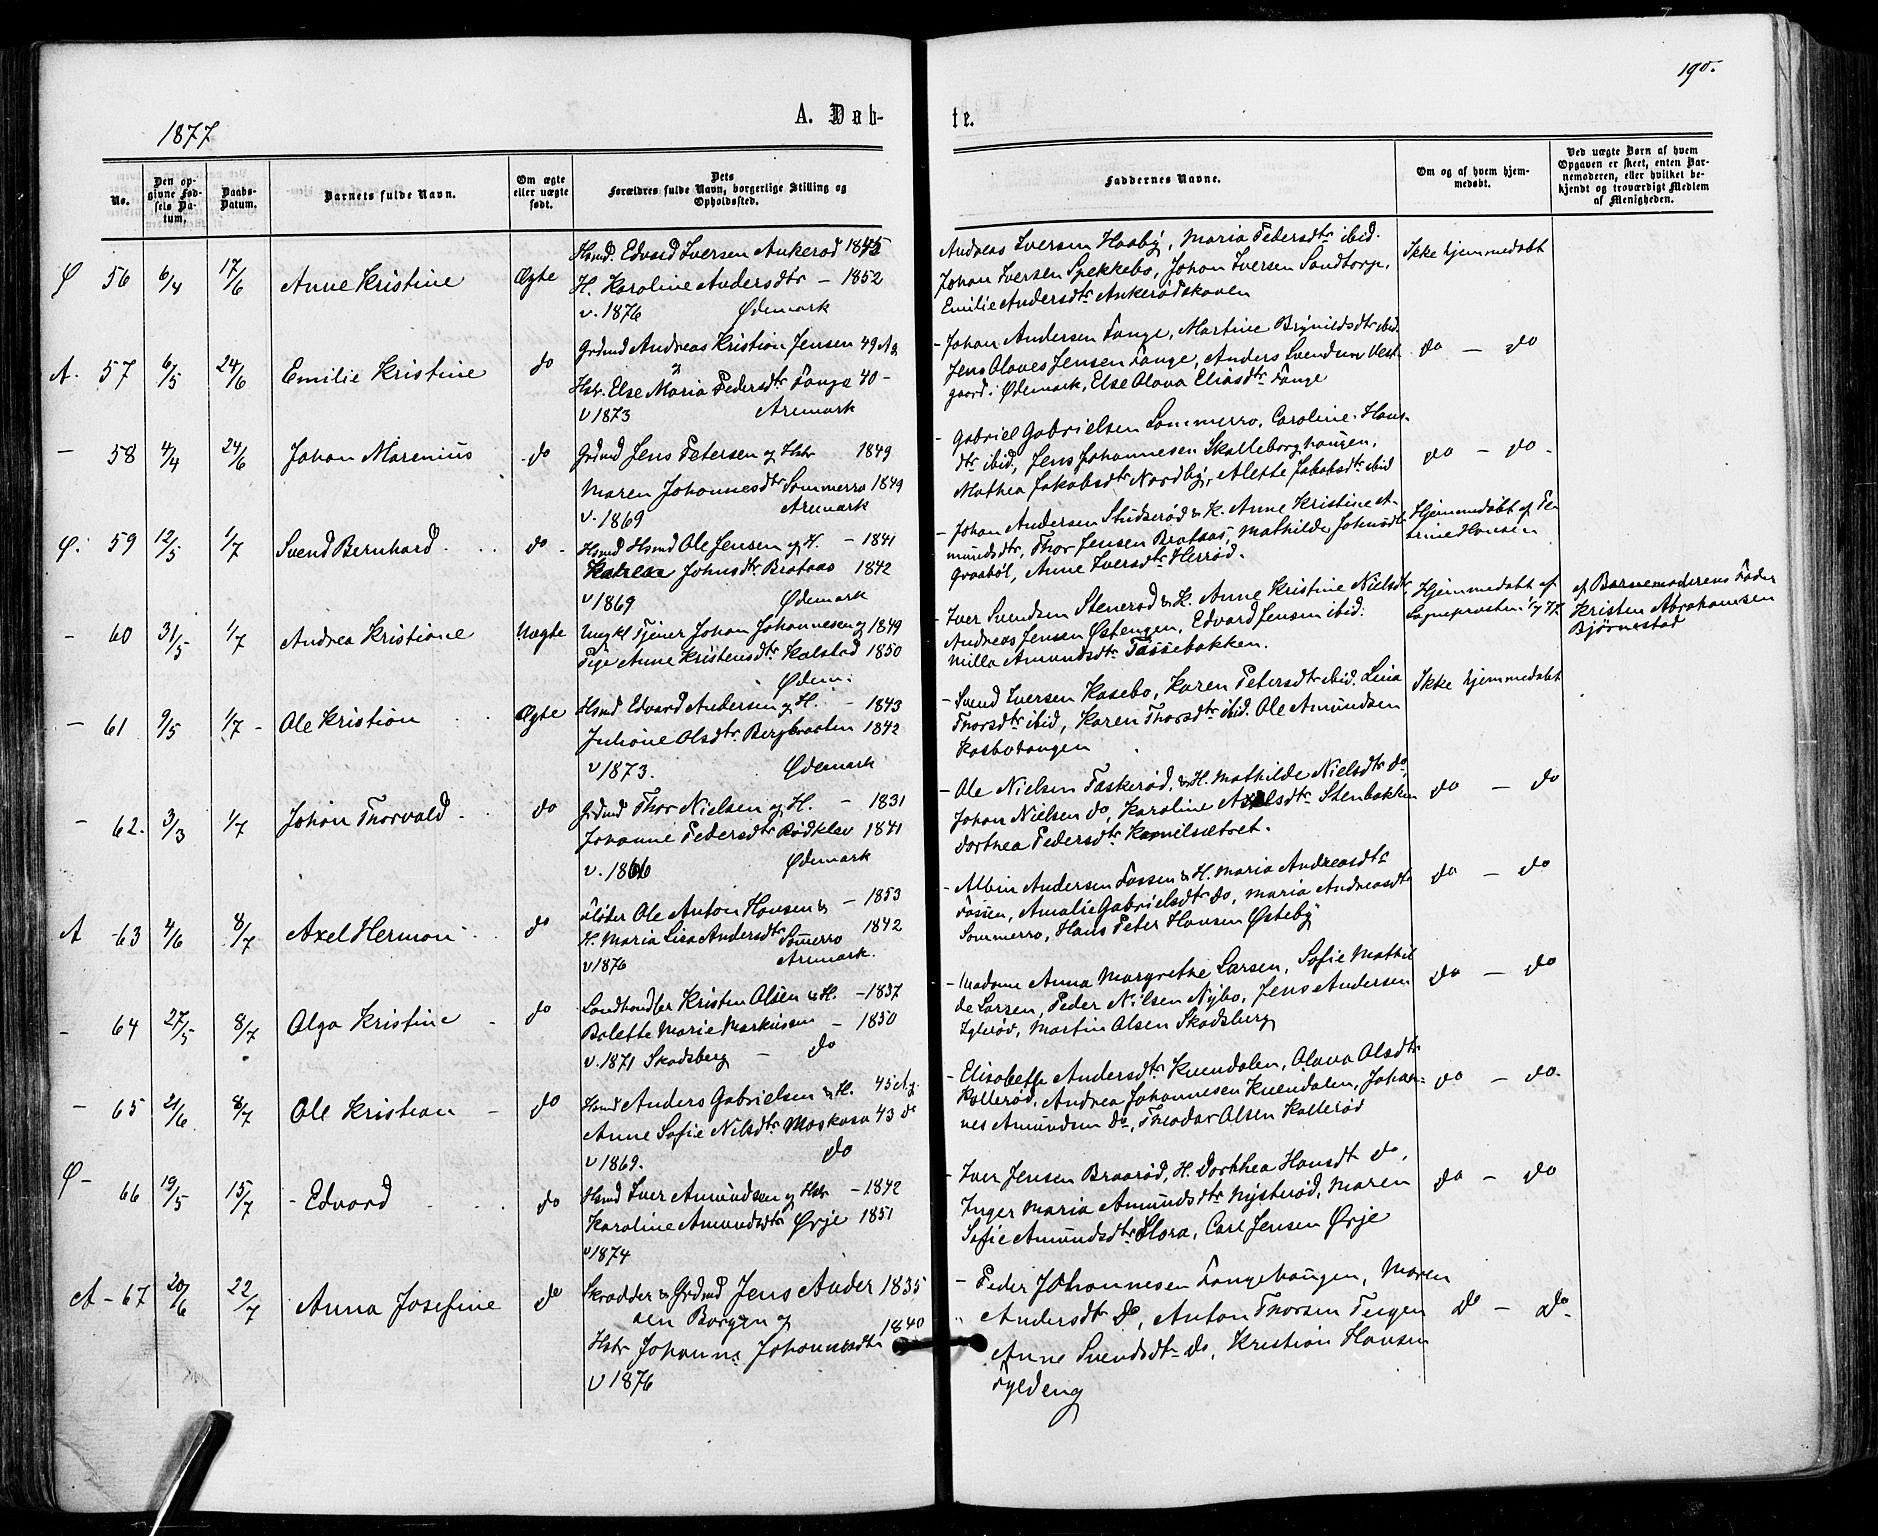 190.
1877
A. Døb-
te.
No.
Den op-
givne Fød-
sels Da-
tum.
Daabs-
Datum.
Barnets fulde Navn.
Om ægte
eller uægte
født.
Dets
Forældres fulde Navn, borgerlige Stilling og
Opholdssted.
Faddernes Navne.
Om og af hvem hjem-
medøbt.
Ved uægte Børn af hvem
Opgaven er skeet, enten Bar-
nemoderen, eller hvilket be-
kjendt og troværdigt Medlem
af Menigheden.
Ø 56 6/4 17/6 Anne Kristine Ægte
Hsmd. Edvard Iversen Ankerød 1845
H. Karoline Andersdtr – 1852
v. 1876 Ødemark
Andreas Iversen Haaby, Maria Pedersdtr ibid.
Johan Iversen Spekkebo, Johan Iversen Sandtorp,
Emilie Andersdtr Ankerødskoven
Ikke hjemmedøbt
A. 57 6/5 24/6 Emilie Kristine do
Grdmd Andreas Kristian Jensen 49 Ag
Hstr. Else Maria Pedersdtr Fange 40 –
v 1873 Aremark
– Johan Andersen Fange, Martine Brynildsdtr ibid.
Jens Olaves Jensen Fange, Anders Svendsen Vest-
gaard i Ødemark, Else Olava Eliasdtr Fange
do – do
– 58 4/4 24/6 Johan Marenius do
Grdmd Jens Petersen og Hstr 1849
Maren Johannesdtr Sommerro 1849
v. 1869 Aremark
– Gabriel Gabrielsen Sommerro, Caroline Hans-
dtr ibid, Jens Johannesen Skolleborghaugen,
Mathea Jakobsdtr Nordby, Alette Jakobsdtr ibid
do – do.
Ø. 59 12/5 1/7 Svend Bernhard. do.
Hsmd Hsmd Ole Jensen og H. – 1841
Johnsdtr Brataas 1842
v 1869 Ødemark
– Johan Andersen Studserød & K. Anne Kristine A-
mundsdtr, Thor Jensen Brataas, Mathilde Johnsdtr
Graabøl, Anne Iversdtr Herrød.
Hjemmedøbt af Pe-
trine Hansen
– 60 31/5 1/7 Andrea Kristiane Uægte
Ungkl Tjener Johan Johannesen og 1849
Pige Anne Kristensdtr Kalstad 1850
Ødem.
– Iver Svendsen Stenerød & K. Anne Kristine Nielsdtr.
Andreas Jensen Østengen, Edvard Jensen ibid.
Milla Amundsdtr Tassebakken.
Hjemmedøbt af
Sogneprosten 1/7 77.
af Barnemoderens Fader
Kristen Abrahamsen
Bjørnestad
– 61 9/5 1/7 – Ole Kristian Ægte
Hsmd Edvard Andersen og H. – 1843
Juliane Olsdtr. Bergbraaten 1842
v 1873. Ødemark
– Svend Iversen Kasebo, Karen Petersdtr ibid. Lina
Thorsdtr ibid, Karen Thorsdtr ibid. Ole Amundsen
Kasbotangen
Ikke hjemmedøbt
– 62. 3/3 1/7 Johan Thorvald. do
Grdmd Thor Nielsen og H. – 1831
Johanne Pedersdtr Rødklev 1841
v. 1866 Ødemark
– Ole Nielsen Taskerød, & H. Mathilde Nielsdtr do,
Johan Nielsen do, Karoline Axelsdtr Stenbakken
Dorthea Pedersdtr Kamilsætret.
do – do
A – 63 4/6 8/7 Axel Herman do
Fløder Ole Anton Hansen & – 1853
H. Maria Lisa Andersdtr Somerro 1842
v 1876 Aremark.
– Albin Andersen Fossen & H. Maria Andreasdtr
Fossen, Amalie Gabrielsdtr do, Maria Andreasdtr
Sommerro, Hans Peter Hansen Østeby
do – do
– 64 27/5 8/7 Olga Kristine do
Landhandler Kristen Olsen & H. – 1837
Bolette Marie Markussen – 1850
v. 1871 Skodsberg – do
– Madame Anna Margrethe Larsen, Sofie Mathil
de Larsen, Peder Nilsen Nybo, Jens Andersen
Iglerød, Martin Olsen Skodsberg
do – do
– 65 21/6 8/7 Ole Kristian – do
Hsmd Anders Gabrielsen & H. 45 Ag.
Anne Sofie Nilsdtr Moskasa 43 do
v 1869. do
– Elisabeth Andersdtr Kuendalen, Olava Olsdtr
Kollerød, Andrea Johannesen Kuendalen, Johan-
nes Amundsen do, Theodor Olsen Kollerød
do – do.
Ø – 66 19/5 15/7 – Edvard do
Hsmd Iver Amundsen og Hstr – 1842
Karoline Amundsdtr Ørje 1851
v 1874
– Iver Jensen Braarød, H. Dorthea Hansdt do,
Inger Maria Amundsdtr Nysterød, Maren
Sofie Amundsdtr Slora, Carl Jensen Ørje
do – do
A – 67 20/6 22/7 Anna Josefine do
Skrædder & Grdmd Jens Ander 1835
sen Borgen og
Hstr Johanne Johannesdtr 1840
v 1876
– Peder Johannesen Fangehaugen, Maren
Andersdtr do, Anton Thorsen Teigen
Anne Svendsdtr do, Kristian Hansen
Fyldeng
do – do.